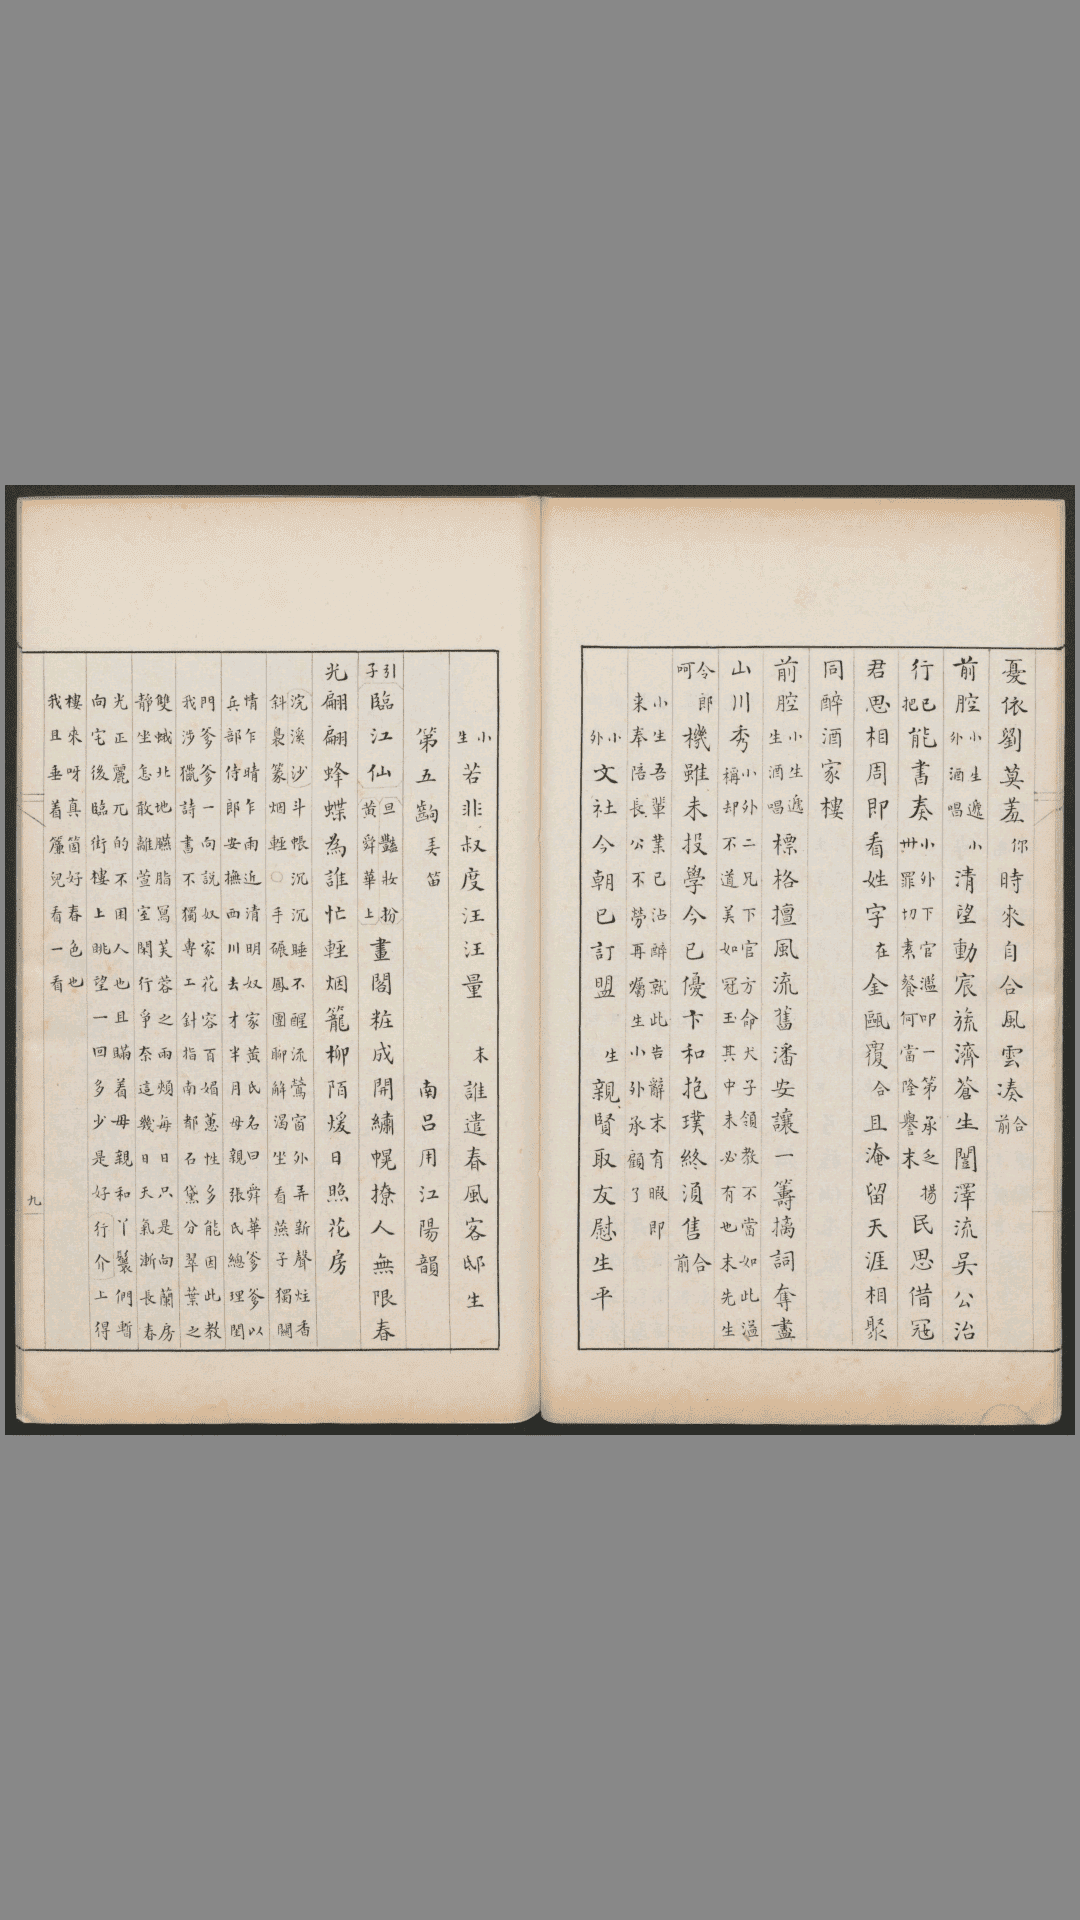 憂依劉莫羞你時來自合風雲凑合前
前腔小生遞酒唱外小清望動宸旒濟蒼生闓澤流吳公治
行已能書奏小外下官濫叨一第承乏把卅罪切素餐何當隆譽末揚民思借冠
君思相周即看姓字在金甌覆合且淹留天涯相聚
同醉酒家樓
前腔小生遞酒唱生標格擅風流舊潘安讓一籌摛詞奪盡
山川秀小外二兄下官方命犬子領教不當如此過稱却不道美如冠玉其中未必有也末先生
令郎呵機雖未投學今已優卞和抱璞終須售合前
小生吾輩業已沾醉就此告辭末有暇即来奉陪長公不勞再囑生小外承顧了
小外文社今朝已訂盟生親賢取友慰生平
小生若非叔度汪汪量末誰遣春風客邸生
第五齣美笛南吕用江陽韻
引子臨江仙旦豔妝扮黄舜華上畫閣粧成開繡幌撩人無限春
光翩翩蜂蝶為誰忙輕烟籠柳陌煖日照花房
浣溪沙斗帳沉沉睡不醒流鶯窗外弄新聲炷香斜裊篆烟輕○手碾鳳團聊解渴坐看燕子獨關
情乍晴乍雨近清明奴家黄氏名曰舜華爹爹以兵部侍郎安撫西川去才半月母親張氏總理閨
門爹爹一向說奴家花容百媚蕙性多能因此教我涉獵詩書不獨専工針指南都石黛分翠葉之
雙蛾北地臙脂寫芙蓉之兩頰每日只是向蘭房靜坐怎敢離萱室閑行争奈這幾日天氣漸長春
光正麗兀的不困人也且瞞着母親和丫鬟們暫向宅後臨街樓上眺望一回多少是好行介上得
樓來呀真箇好春色也我且垂着簾兒看一看
九